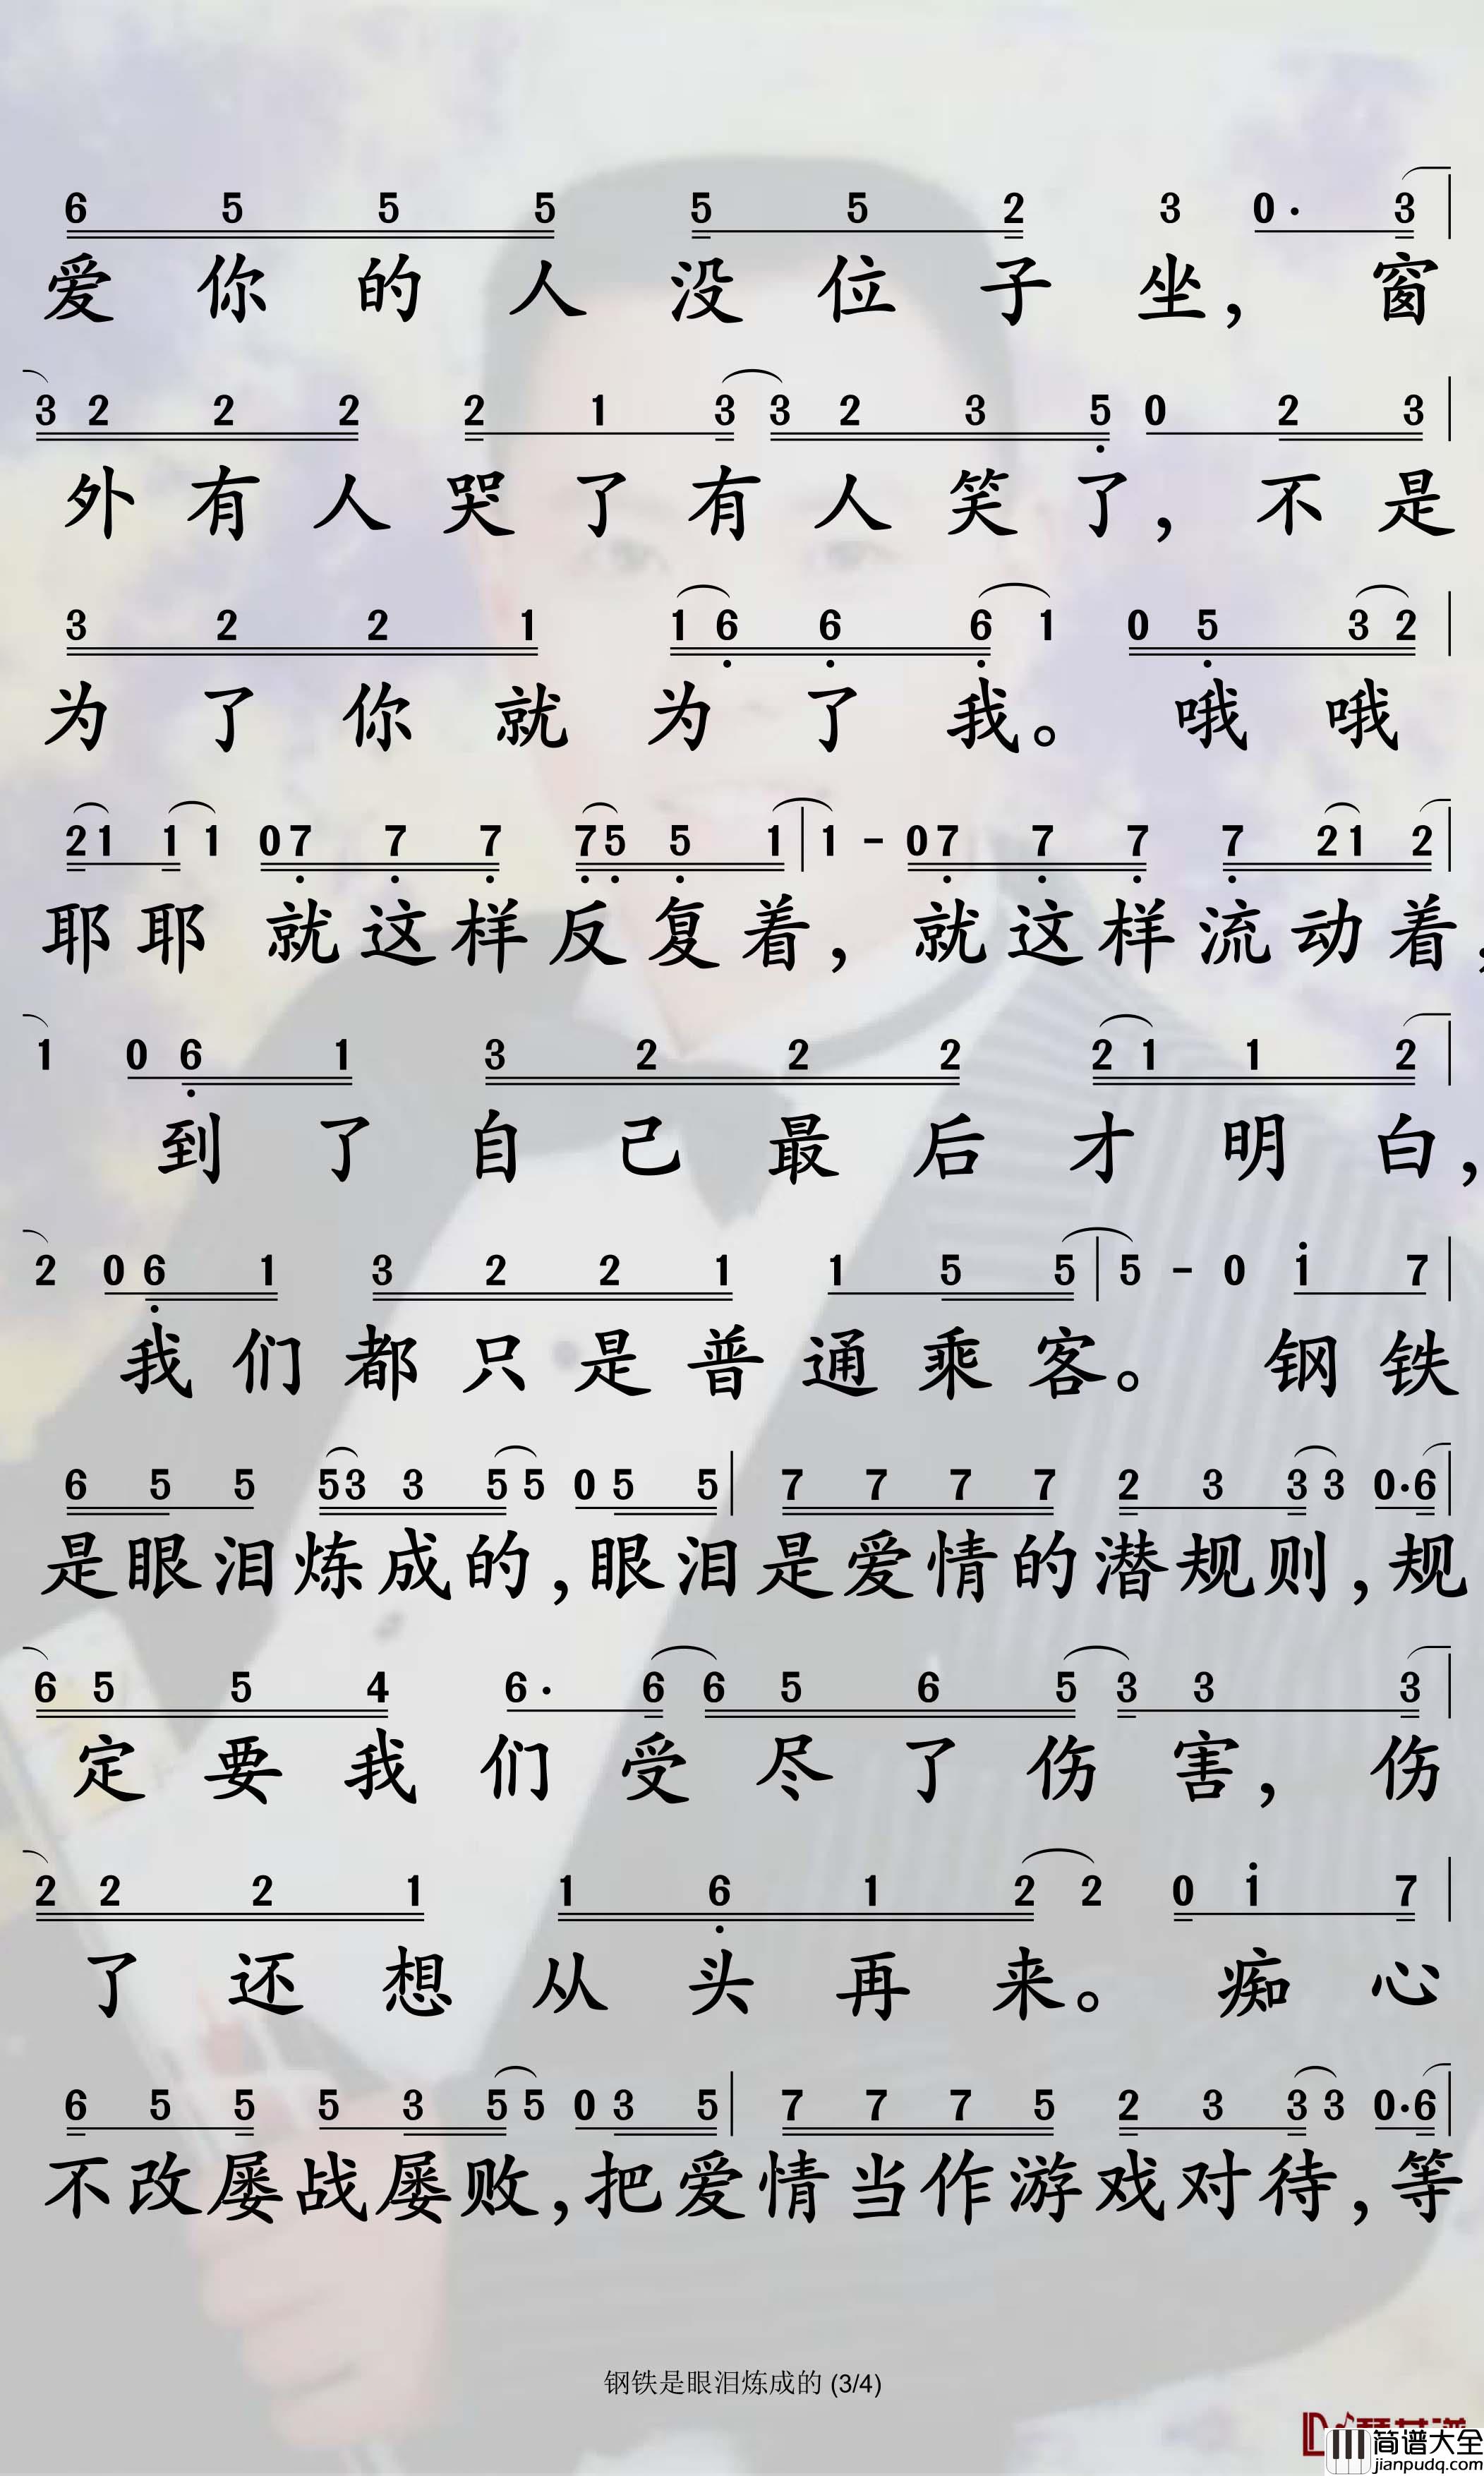 6 5 5 5 5 5 2 3 0· 3
爱你的人没位子坐，窗
3 2 2 2 2 1 3 3 2 3 5 0 2 3
外有人哭了有人笑了，不是
3 2 2 1 1 6 6 6 1 0 5 3 2
为了你就为了我。哦哦
2 1 1 1 0 7 7 7 7 5 5 1 | 1 - 0 7 7 7 7 2 1 2
耶耶 就这样反复着，就这样流动着，
1 0 6 1 3 2 2 2 2 1 1 2
到了自己最后才明白，
2 0 6 1 3 2 2 1 1 5 5 | 5 - 0 i 7
我们都只是普通乘客。钢铁
6 5 5 5 3 3 5 5 0 5 5 | 7 7 7 7 2 3 3 3 0· 6
是眼泪炼成的，眼泪是爱情的潜规则，规
6 5 5 4 6· 6 6 5 6 5 3 3 3
定要我们受尽了伤害，伤
2 2 2 1 1 6 1 2 2 0 i 7
了还想从头再来。痴心
6 5 5 5 3 5 5 0 3 5 | 7 7 7 5 2 3 3 3 0· 6
不改屡战屡败，把爱情当作游戏对待，等
钢铁是眼泪炼成的 (3/4)
简谱大全
jianpudq.com